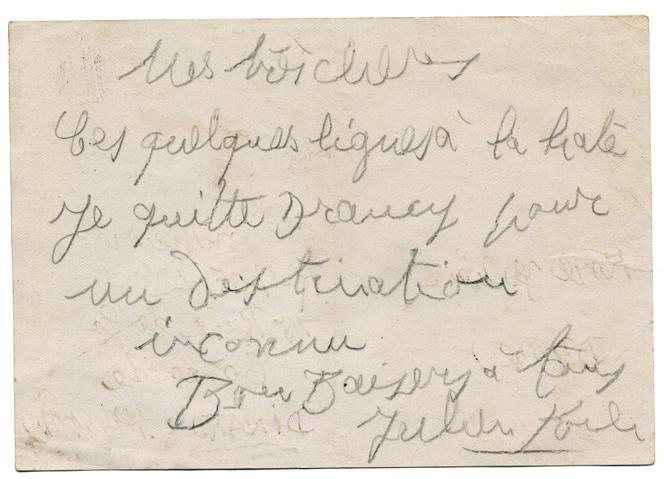 Mes très chères
Ces quelques lignes à la hate
Je quitte Drancy pour
un destination
inconnu
Bon Baisers à tous
Julien